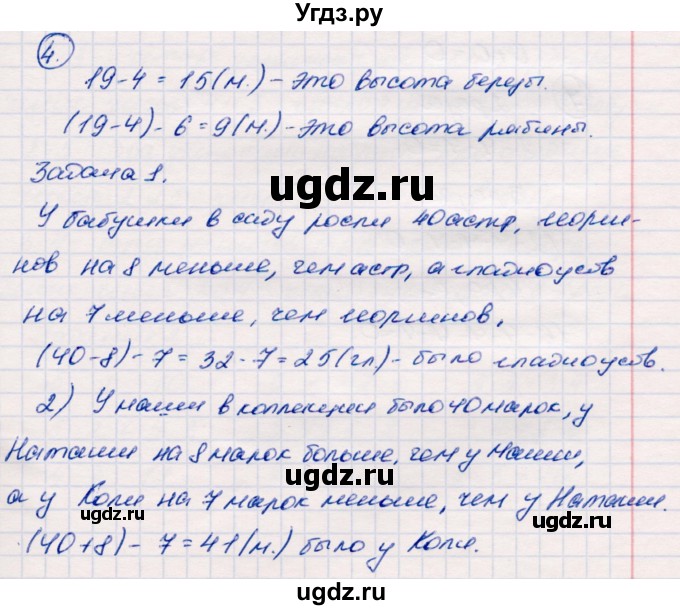 Угдз.ру
4.
19-4=15(м.) - это высота березы.
(19-4)-6=9(м.) - это высота рябины.
Задача 1.
ugdz.ru
У бабушки в саду росли 40 астр, георги-
нов на 8 меньше, чем астр, а гладиоусв
на 7 меньше, чем георгинов.
ugdz.ru
(40-8)-7=32-7=25(гл.) - было гладиоусв.
2) У маши в коллекции было 40 марок, у
ugdz.ru
Наташи на 8 марок больше, чем у Маши,
ugdz.ru
а у Коли на 7 марок меньше, чем у Наташи.
ugdz.ru
(40+8)-7=41(м.) было у Коли.
ugdz.ru